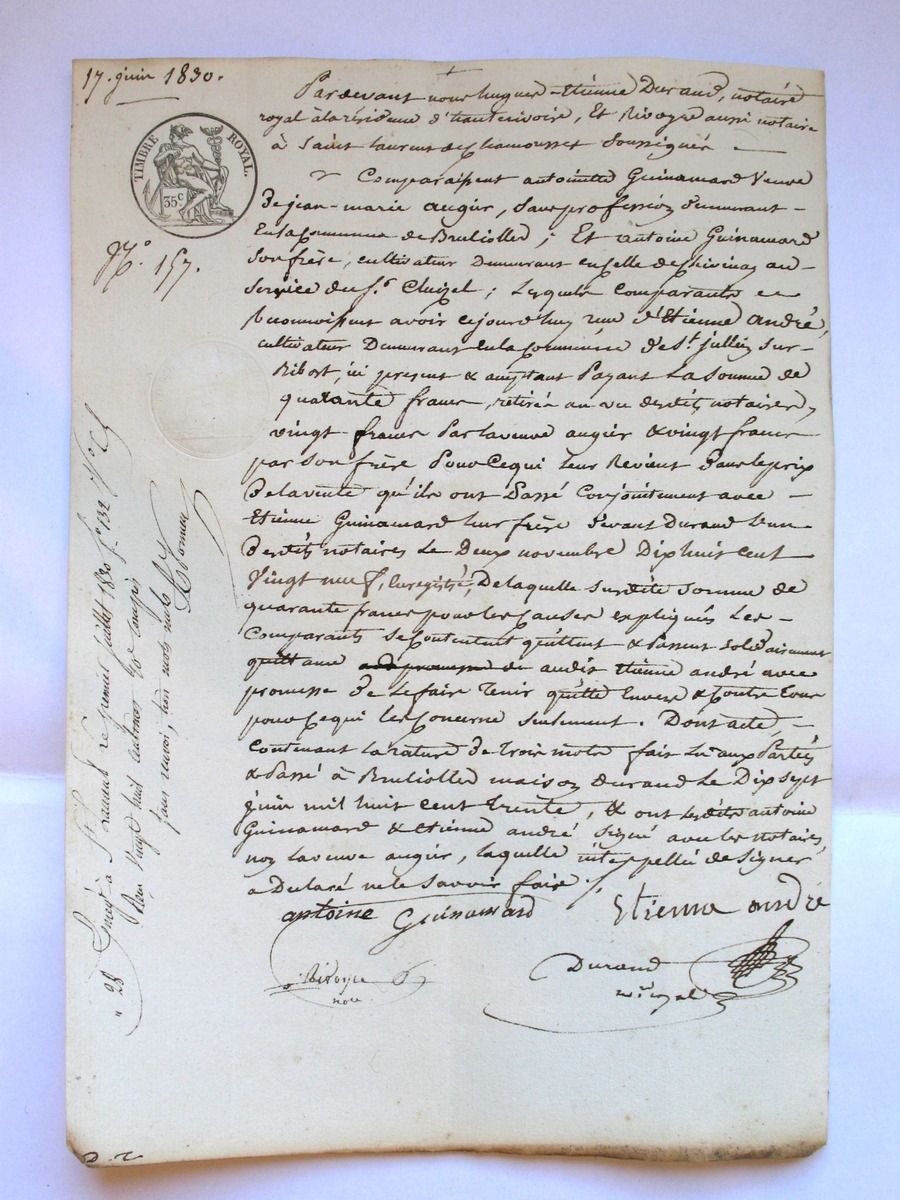 17. juin 1830.
TIMBRE ROYAL.
35 c
N.° 157.
Pardevant nous hugues-Etienne Durand, notaire
royal à la résidence d'hauterivoire, Et Rivoyre aussi notaire
à Saint Laurent de Chamousset Soussignés —
Comparaissent antoinette Guinamard Veuve
De jean-marie augier, Sans profession Demeurant –
En la Commune de Brulliolles ; Et antoine Guinamard
Son frère, cultivateur Demeurant en celle de chivinay au-
Service du S.r Cluzel ; Lesquels Comparants
Reconnoissent avoir cejourd'huy reçu d'Etienne andré,
cultivateur Demeurant En la Commune de St. jullien Sur-
Bibost, ici présent & acceptant Payant La Somme de
quarante francs, retirée au vu desdits notaires,
vingt francs Par la veuve augier & vingt francs
par Son frère Pour Ce qui leur Revient Dans le prix
De la vente qu'ils ont Passé Conjointement avec –
Etienne Guinamard leur frère Devant Durand L'un
Desdits notaires Le Deux novembre Dix huit cent
Vingt neuf, Enregistré, De laquelle Susdite Somme de
quarante francs pour les Causes expliqués Les –
Comparants Se Contentent quittent & Passent solidairement
quittance audit Etienne andré avec
promesse De le faire Tenir quitte Envers & Contre tous
pour Ce qui les Concerne Seulement. Dont acte, –
Contenant la rature De trois mots fait Lu aux Parties
& Passé à Brulliolles maison Durand Le Dix sept
juin mil huit cent trente, & ont lesdits antoine
Guinamard & Etienne andré Signé avec les notaires,
non la veuve augier, laquelle interpellée de Signer
a Déclaré ne le Savoir faire ./.
antoine Guinamard Etienne andré
Rivoyre
not
Durand
n.re royal
Enregé à St. Laurent le premier juillet 1830 f.o 132
Reçu vingt huit centimes 10e compris
sans renvoi, trois mots nuls
28